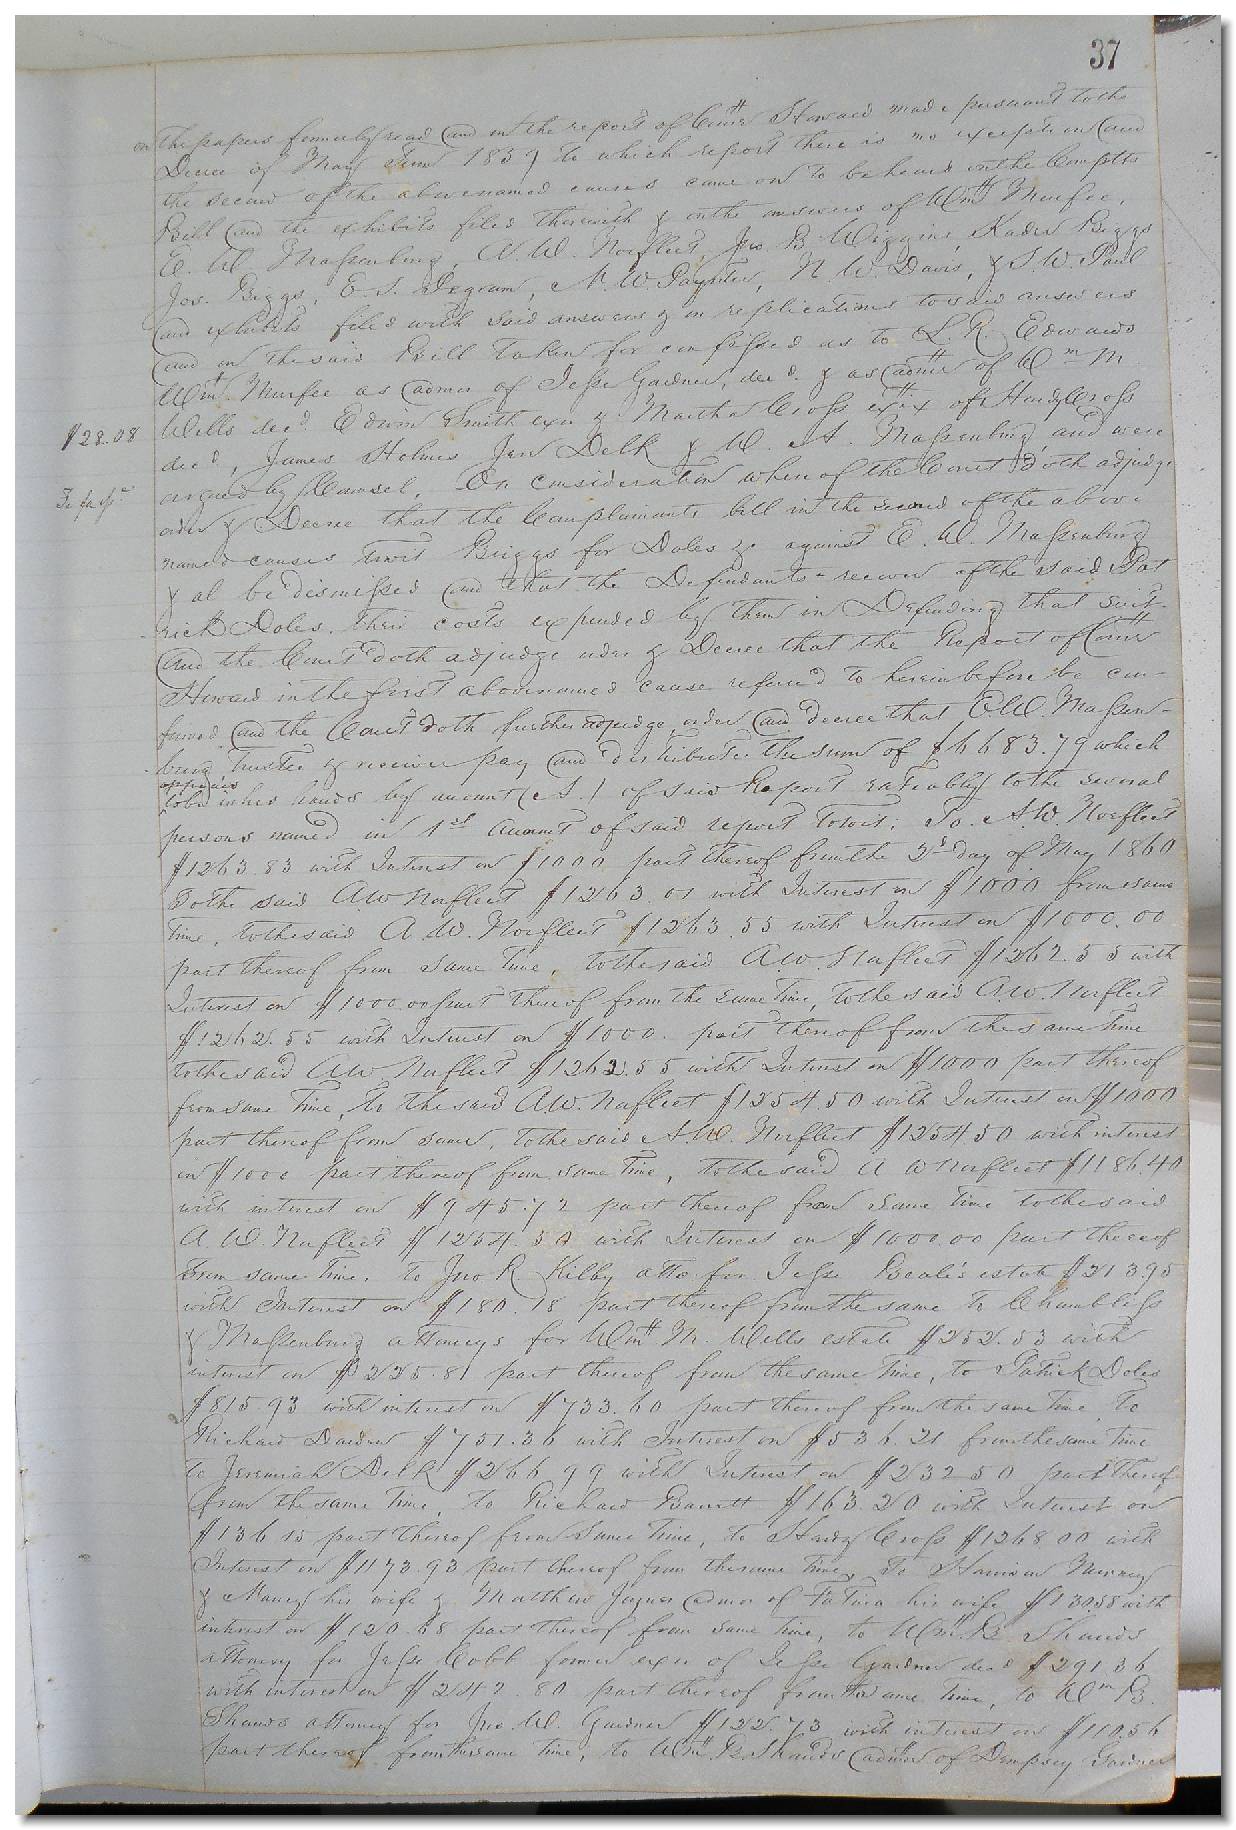 37
on the papers formerly read and on the report of Comr Howard made pursuant to the
Decree of May Term 1859 to which report there is no exception and
the second of the abovenamed causes came on to be heard on the Complts
Bill and the exhibits filed therewith & on the answers of Wm Murfee,
E. W. Massenburg, A. W. Norfleet, Jno. B. Wiggins, Kader Biggs
Jos. Biggs, E. S. Pegram, N. W. Paynter, N. W. Davis, & S. W. Paul
and exhibits filed with said answers & on replications to said answers
and on the said Bill taken for confessed as to L. R. Edwards
Wm Murfee as admor of Jesse Gardner, decd. & as admr of Wm M
$28.08
Wells decd. Edwin Smith exr & Martha Cross exix of Hardy Cross
decd, James Holmes Jere Delk & W. A. Massenburg and were
argued by Counsel. On consideration whereof the Court doth adjudge
order & Decree that the Complainants bill in the second of the above
named causes towit Briggs for Doles &c against E. W. Massenburg
& al be dismissed and that the Defendants recover of the said Pat
rick Doles their costs expended by them in Defending that suit.
And the Court doth adjudge order & Decree that the Report of Comr
Howard in the first abovenamed cause referred to hereinbefore be con-
firmed and the Court doth further adjudge order and decree that E. W. Massen-
burg Trustee & receiver pay and distribute the sum of $6683.79 which
appears
to be in his hands by account (A.) of said Report rateably to the several
persons named in 1st account of said report towit: To A. W. Norfleet
$1263.83 with Interest on $1000 part thereof from the 2d day of May 1860
To the said A W Norfleet $1263.01 with Interest on $1000 from same
time, to the said A. W. Norfleet $1263.55 with Interest on $1000.00
part thereof from same time, to the said A. W. Norfleet $1262.55 with
Interest on $1000.00 part thereof from the same time, to the said A. W. Norfleet
$1262.55 with Interest on $1000. part thereof from the same time
to the said A W Norfleet $1262.55 with Interest on $1000 part thereof
from same time, to the said A W. Norfleet $1254.50 with Interest on $1000
part thereof from same, to the said A. W. Norfleet $1254.50 with interest
on $1000 part thereof from same time, to the said A W Norfleet $1186.40
with interest on $945.72 part thereof from same time to the said
A. W. Norfleet $1254.50 with Interest on $1000.00 part thereof
from same time, to Jno R. Kilby atto for Jesse Beale's estate $213.95
with Interest on $180.18 part thereof from the same to Chambliss
& Massenburg attorneys for Wm M. Wells estate $252.53 with
interest on $225.81 part thereof from the same time, to Patrick Doles
$815.93 with interest on $733.60 part thereof from the same time to
Richard Darden $751.36 with Interest on $536.21 from the same time
to Jeremiah Delk $266.99 with Interest on $232.50 part thereof
from the same time, to Richard Barrett $163.20 with Interest on
$136.15 part thereof from same time, to Hardy Cross $1268.00 with
Interest on $1173.93 part thereof from the same time, To Harrison
& Nancy his wife & Matthew Joyner admor of his wife $130.58 with
interest on $120.68 part thereof from same time, to Wm B. Shands
attorney for Jesse Cobb former exr of Jesse Gardner decd $291.36
with interest on $242.80 part thereof from the same time, to Wm B.
Shands attorney for Jno. W. Gardner $122.73 with interest on $110.56
part thereof from the same time, to Wm B. Shands admr of Dempsey Gardner